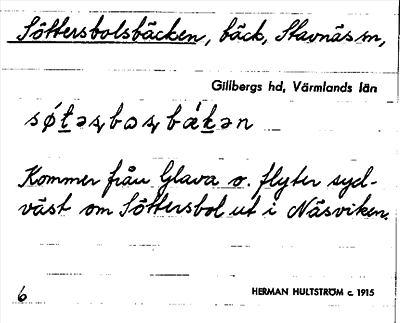 Söttersbolsbäcken, bäck, Stavnäs sn,
Gillbergs hd, Värmlands län
Kommer från Glava o. flyter syd-
väst om Söttersbol ut i Näsviken.
6
HERMAN HULTSTRÖM c. 1915